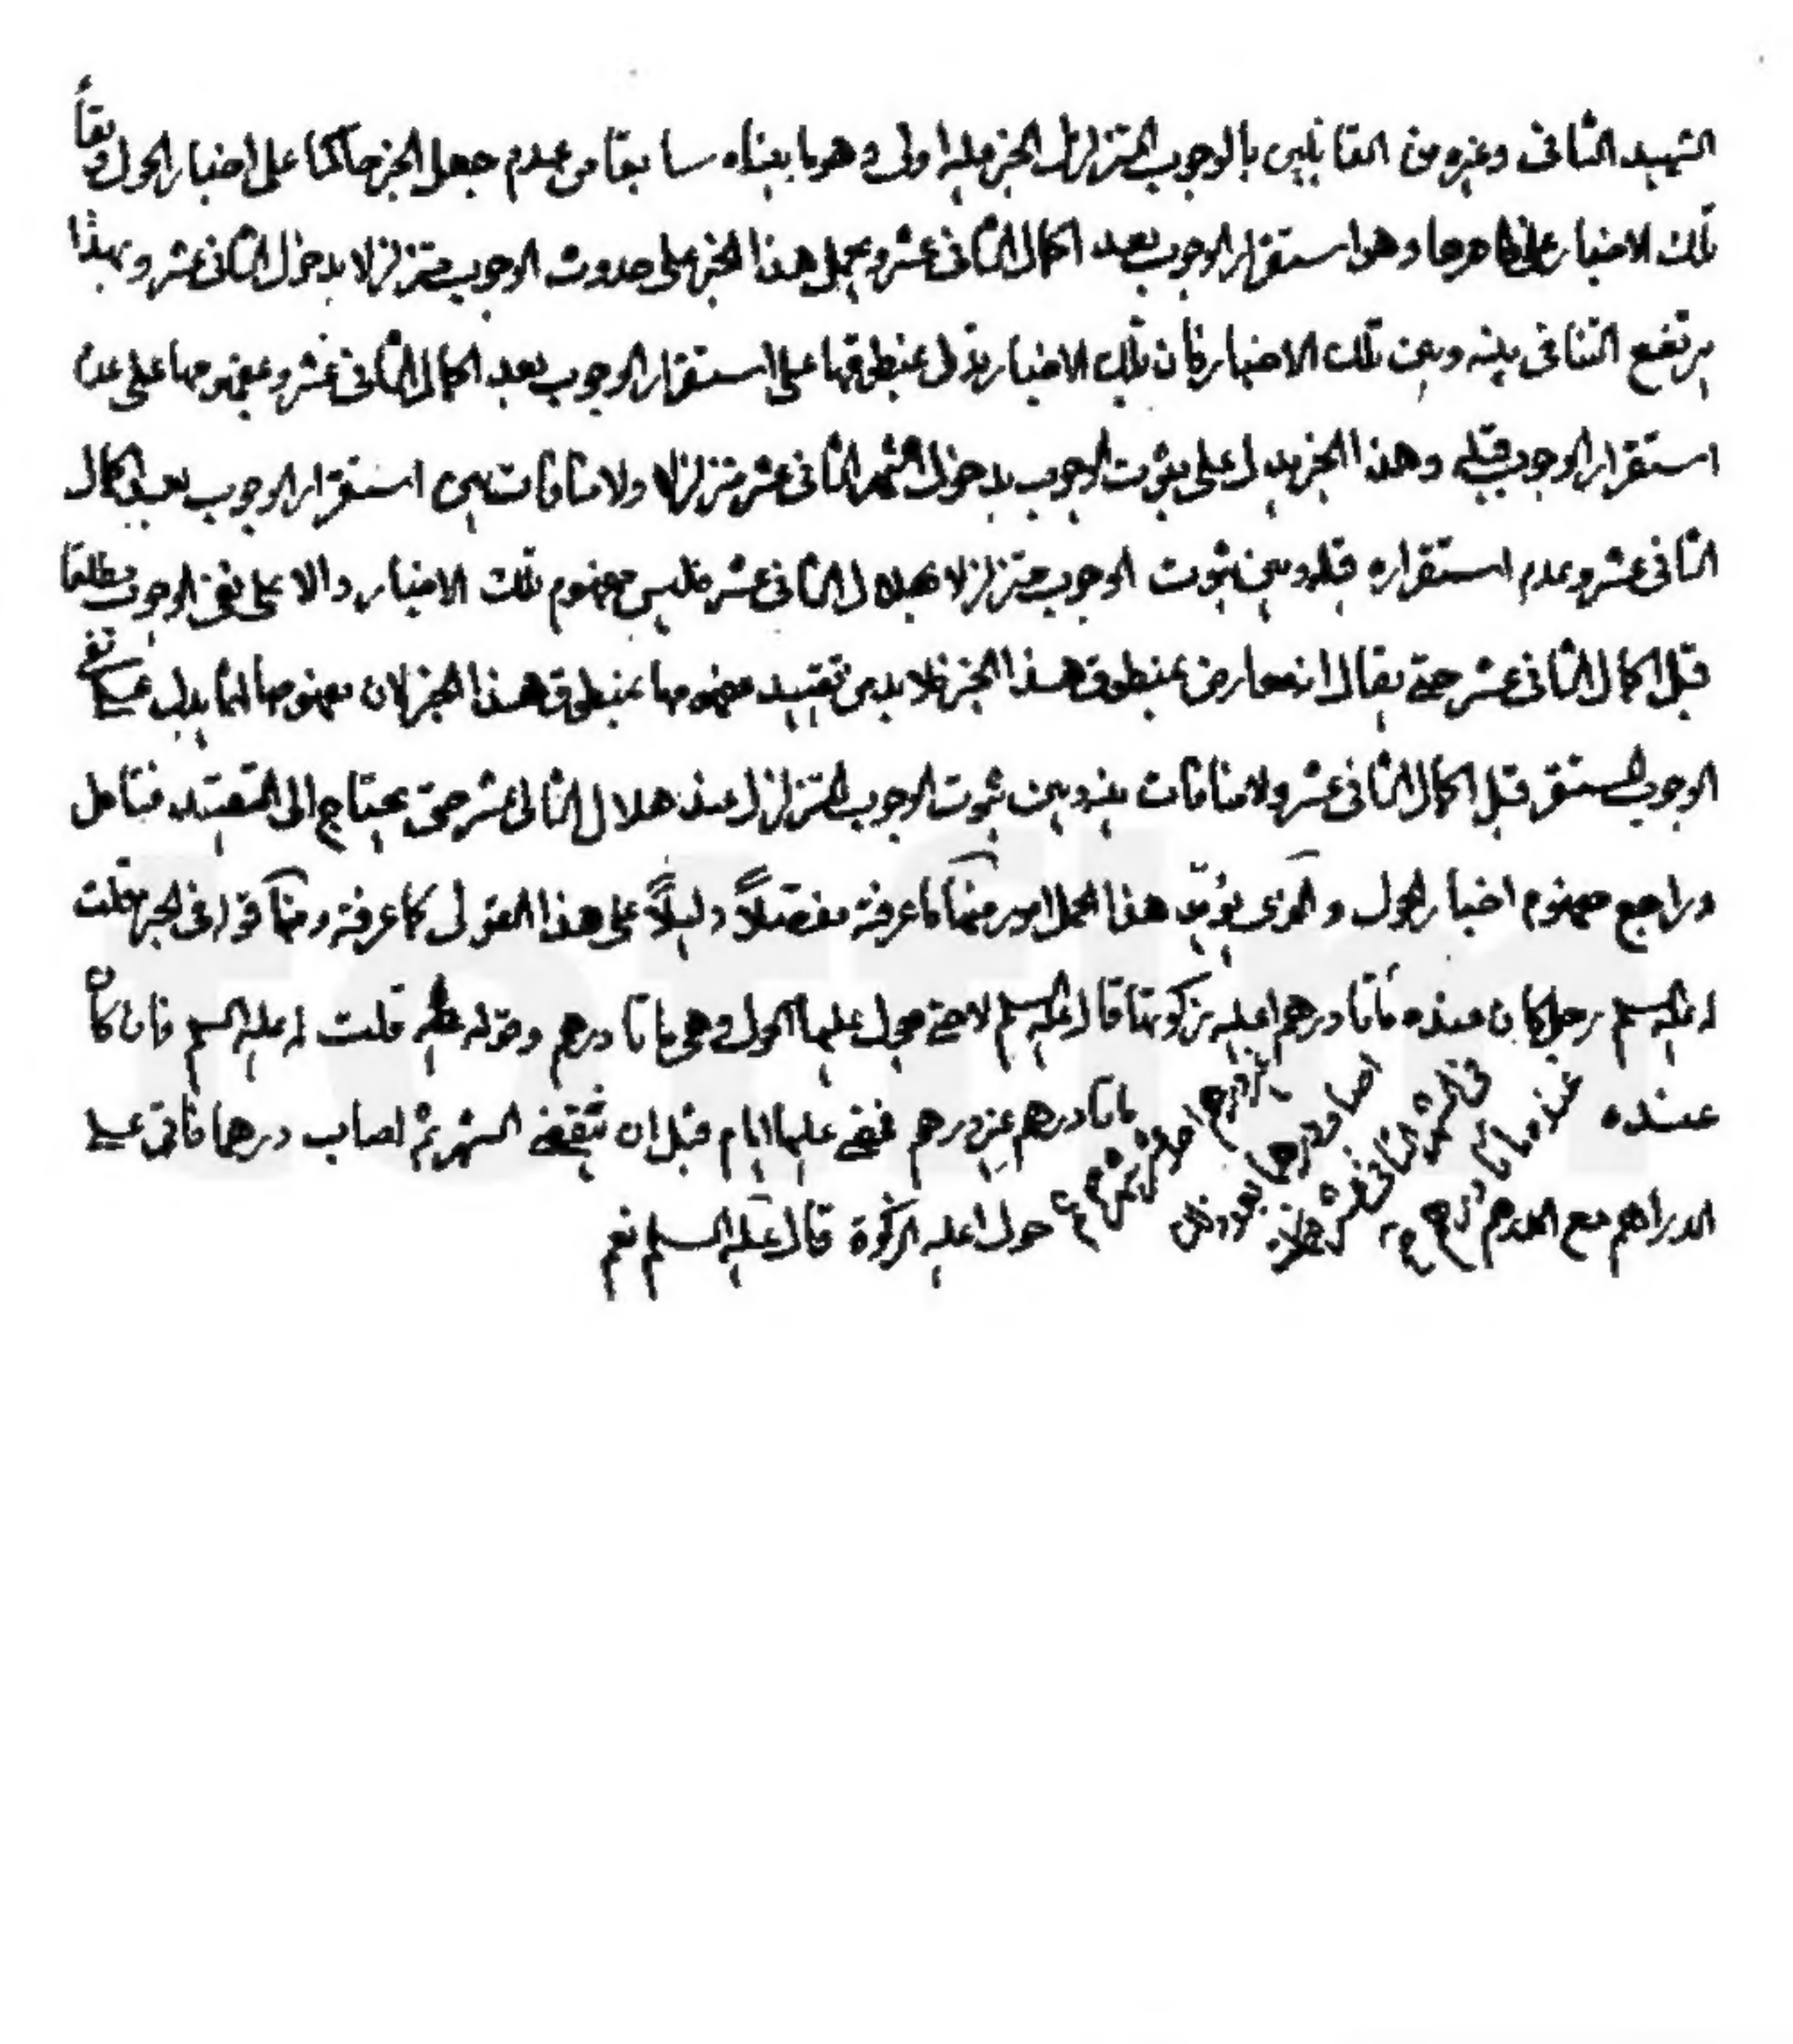 الشهيد الثانى وغيره من القائلين بالوجوب المتزلزل الخبر عليه اولى وهو ما بيناه سابقا من عدم جعل الخبر حاكما على اخبار الحول وبقاء
تلك الاخبار على ظاهرها وهو استقرار الوجوب بعد اكمال الثانى عشر ويحمل هذا الخبر على حدوث الوجوب متزلزلا بدخول الثانى عشر وبهذا
يرتفع التنافى بينه وبين تلك الاخبار فان تلك الاخبار تدل بمنطوقها على استقرار الوجوب بعد اكمال الثانى عشر وبمفهومها على عدم
استقرار الوجوب قبله وهذا الخبر يدل على ثبوت الوجوب بدخول الشهر الثانى عشر متزلزلا ولا منافات بين استقرار الوجوب بعد اكمال
الثانى عشر وعدم استقراره قبله وبين ثبوت الوجوب متزلزلا بهلال الثانى عشر فليس مفهوم تلك الاخبار دالا على نفى الوجوب مطلقا
قبل اكمال الثانى عشر حتى يقال انه معارض بمنطوق هذا الخبر فلا بد من تقييد مفهومها بمنطوق هذا الخبر لان مفهومها انما يدل على نفى
الوجوب المستقر قبل اكمال الثانى عشر ولا منافات بينه وبين ثبوت الوجوب المتزلزل عند هلال الثانى عشر حتى يحتاج الى التقييد فتامل
وراجع مفهوم اخبار الحول والذى يؤيد هذا الحمل امور منها ما عرفته مفصلاً دليلاً على هذا القول كما عرفته ومنها قوله فى الخبر قلت
له عليه السلم رجل كان عنده مأتا درهم اعليه زكوتها قال عليه السلم لا حتى يحول عليها الحول وهى مأتا درهم وقوله قلت له عليه السلم فان كان
عنده مأتا درهم غير درهم فمضى عليها ايام قبل ان ينقضى الشهر ثم اصاب درهما فاتى على
الدراهم مع الدرهم حول اعليه الزكوة قال عليه السلم نعم